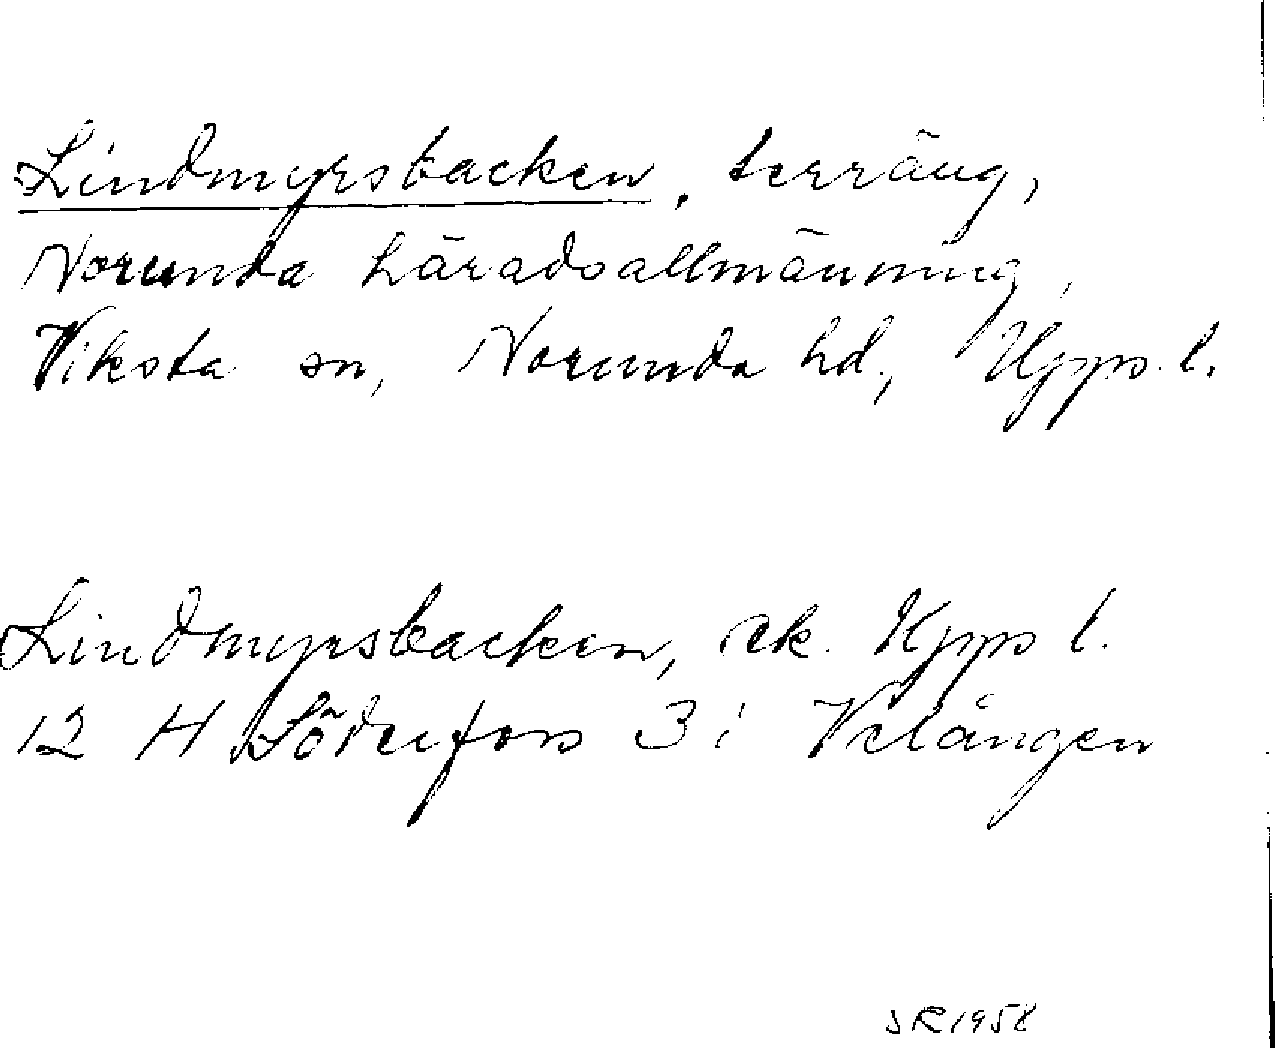 Lindmyrsbacken, terräng,
Norunda häradsallmänning,
Viksta sn, Norunda hd., Upps. l.
Lindmyrsbacken, ek. Upps l.
12 H Söderfors 3 i Velången
JR 1958